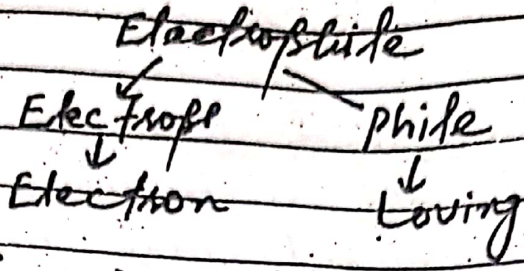 Electrophile
Electroph phile
Electron Loving